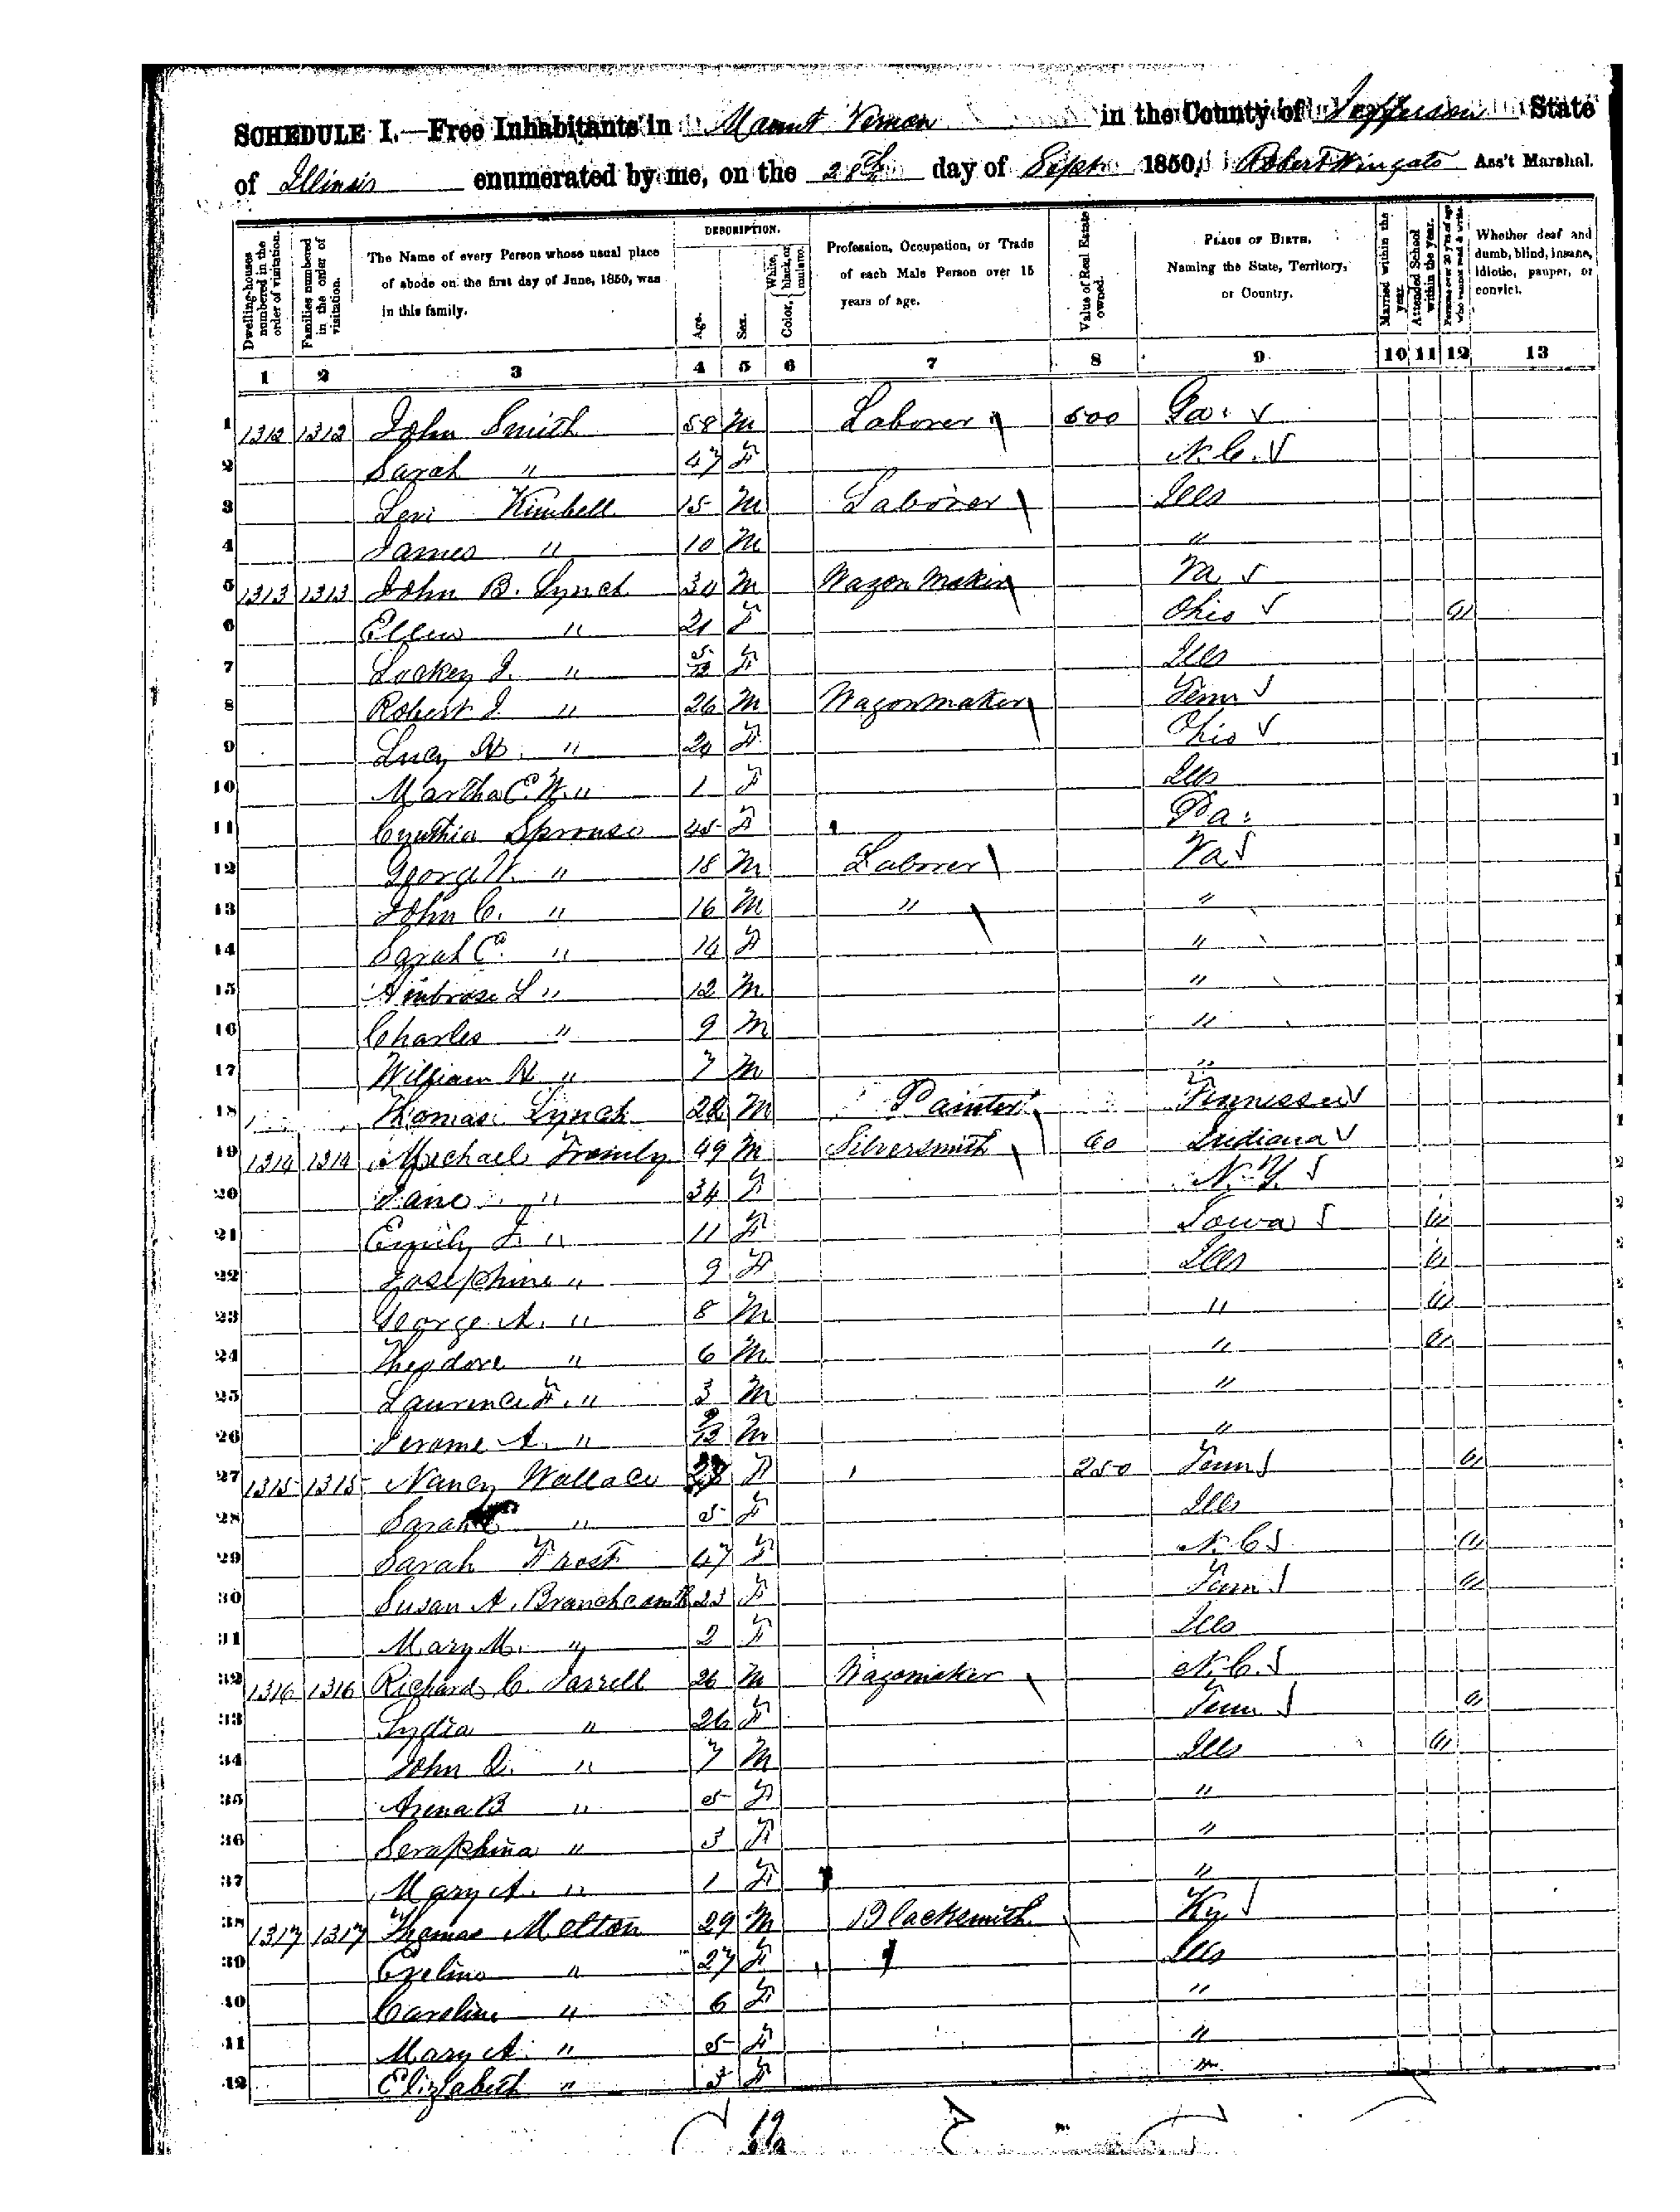 SCHEDULE I.—Free Inhabitants in Mount Vernon in the County of Jefferson State
of Illinois enumerated by me, on the 28th day of Sept 1850, Robert Wingate Ass't Marshal.
Dwelling-houses numbered in the order of visitation.
Families numbered in the order of visitation.
The Name of every Person whose usual place of abode on the first day of June, 1850, was in this family.
DESCRIPTION.
Age.
Sex.
Color, { White, black, or mulatto.
Profession, Occupation, or Trade of each Male Person over 15 years of age.
Value of Real Estate owned.
PLACE OF BIRTH, Naming the State, Territory, or Country.
Married within the year.
Attended School within the year.
Persons over 20 y'rs of age who cannot read & write.
Whether deaf and dumb, blind, insane, idiotic, pauper, or convict.
1 2 3 4 5 6 7 8 9 10 11 12 13
1 1312 1312 John Smith 58 M Laborer 500 Ga.
2 Sarah " 47 F N.C.
3 Levi Kimbell 15 M Laborer Ills
4 James " 10 M "
5 1313 1313 John B. Lynch 30 M Wagon Maker Va
6 Ellen " 21 F Ohio
7 Lockey J. " 5/12 F Ills
8 Robert J. " 26 M Wagonmaker Tenn
9 Lucy " 20 F Ohio
10 Martha C. W. " 1 F Ills
11 Cynthia Sprouse 45 F Pa.
12 George W. " 18 M Laborer Va
13 John C. " 16 M " "
14 Sarah C. " 14 F "
15 Ambrose L " 12 M "
16 Charles " 9 M "
17 William H " 7 M "
18 Thomas Lynch 22 M Painter Tennessee
19 1314 1314 Michael 49 M Silversmith 60 Indiana
20 Jane " 34 F N.Y.
21 Emily J. " 11 F Iowa
22 Josephine " 9 F Ills
23 George A. " 8 M "
24 Theodore " 6 M "
25 Laurence F. " 3 M "
26 Jerome A. " 9/12 M "
27 1315 1315 Nancy Wallace 28 F 250 Tenn
28 Sarah " 5 F Ills
29 Sarah Frost 47 F N.C
30 Susan A. 23 F Tenn
31 Mary M. " 2 F Ills
32 1316 1316 Richard C. Jarrell 26 M Wagomaker N.C.
33 Lydia " 26 F Tenn
34 John Q. " 7 M Ills
35 Arena B " 5 F "
36 Seraphina " 3 F "
37 Mary A. " 1 F "
38 1317 1317 Thomas Melton 29 M Blacksmith Ky
39 Eveline " 27 F Ills
40 Caroline " 6 F "
41 Mary A. " 5 F "
42 Elizabeth " 3 F "